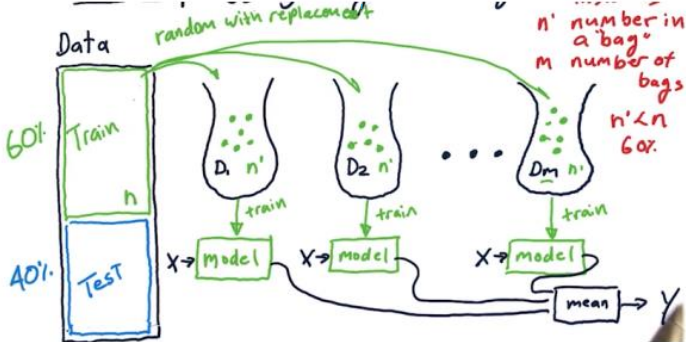 random with replacement
Data
n' number in
a "bag"
m number of
bags
n'<n
60%
60%
Train
n
40%
Test
D1 n'
D2 n'
Dm n'
train
train
train
X→ model
X→ model
X→ model
mean → Y